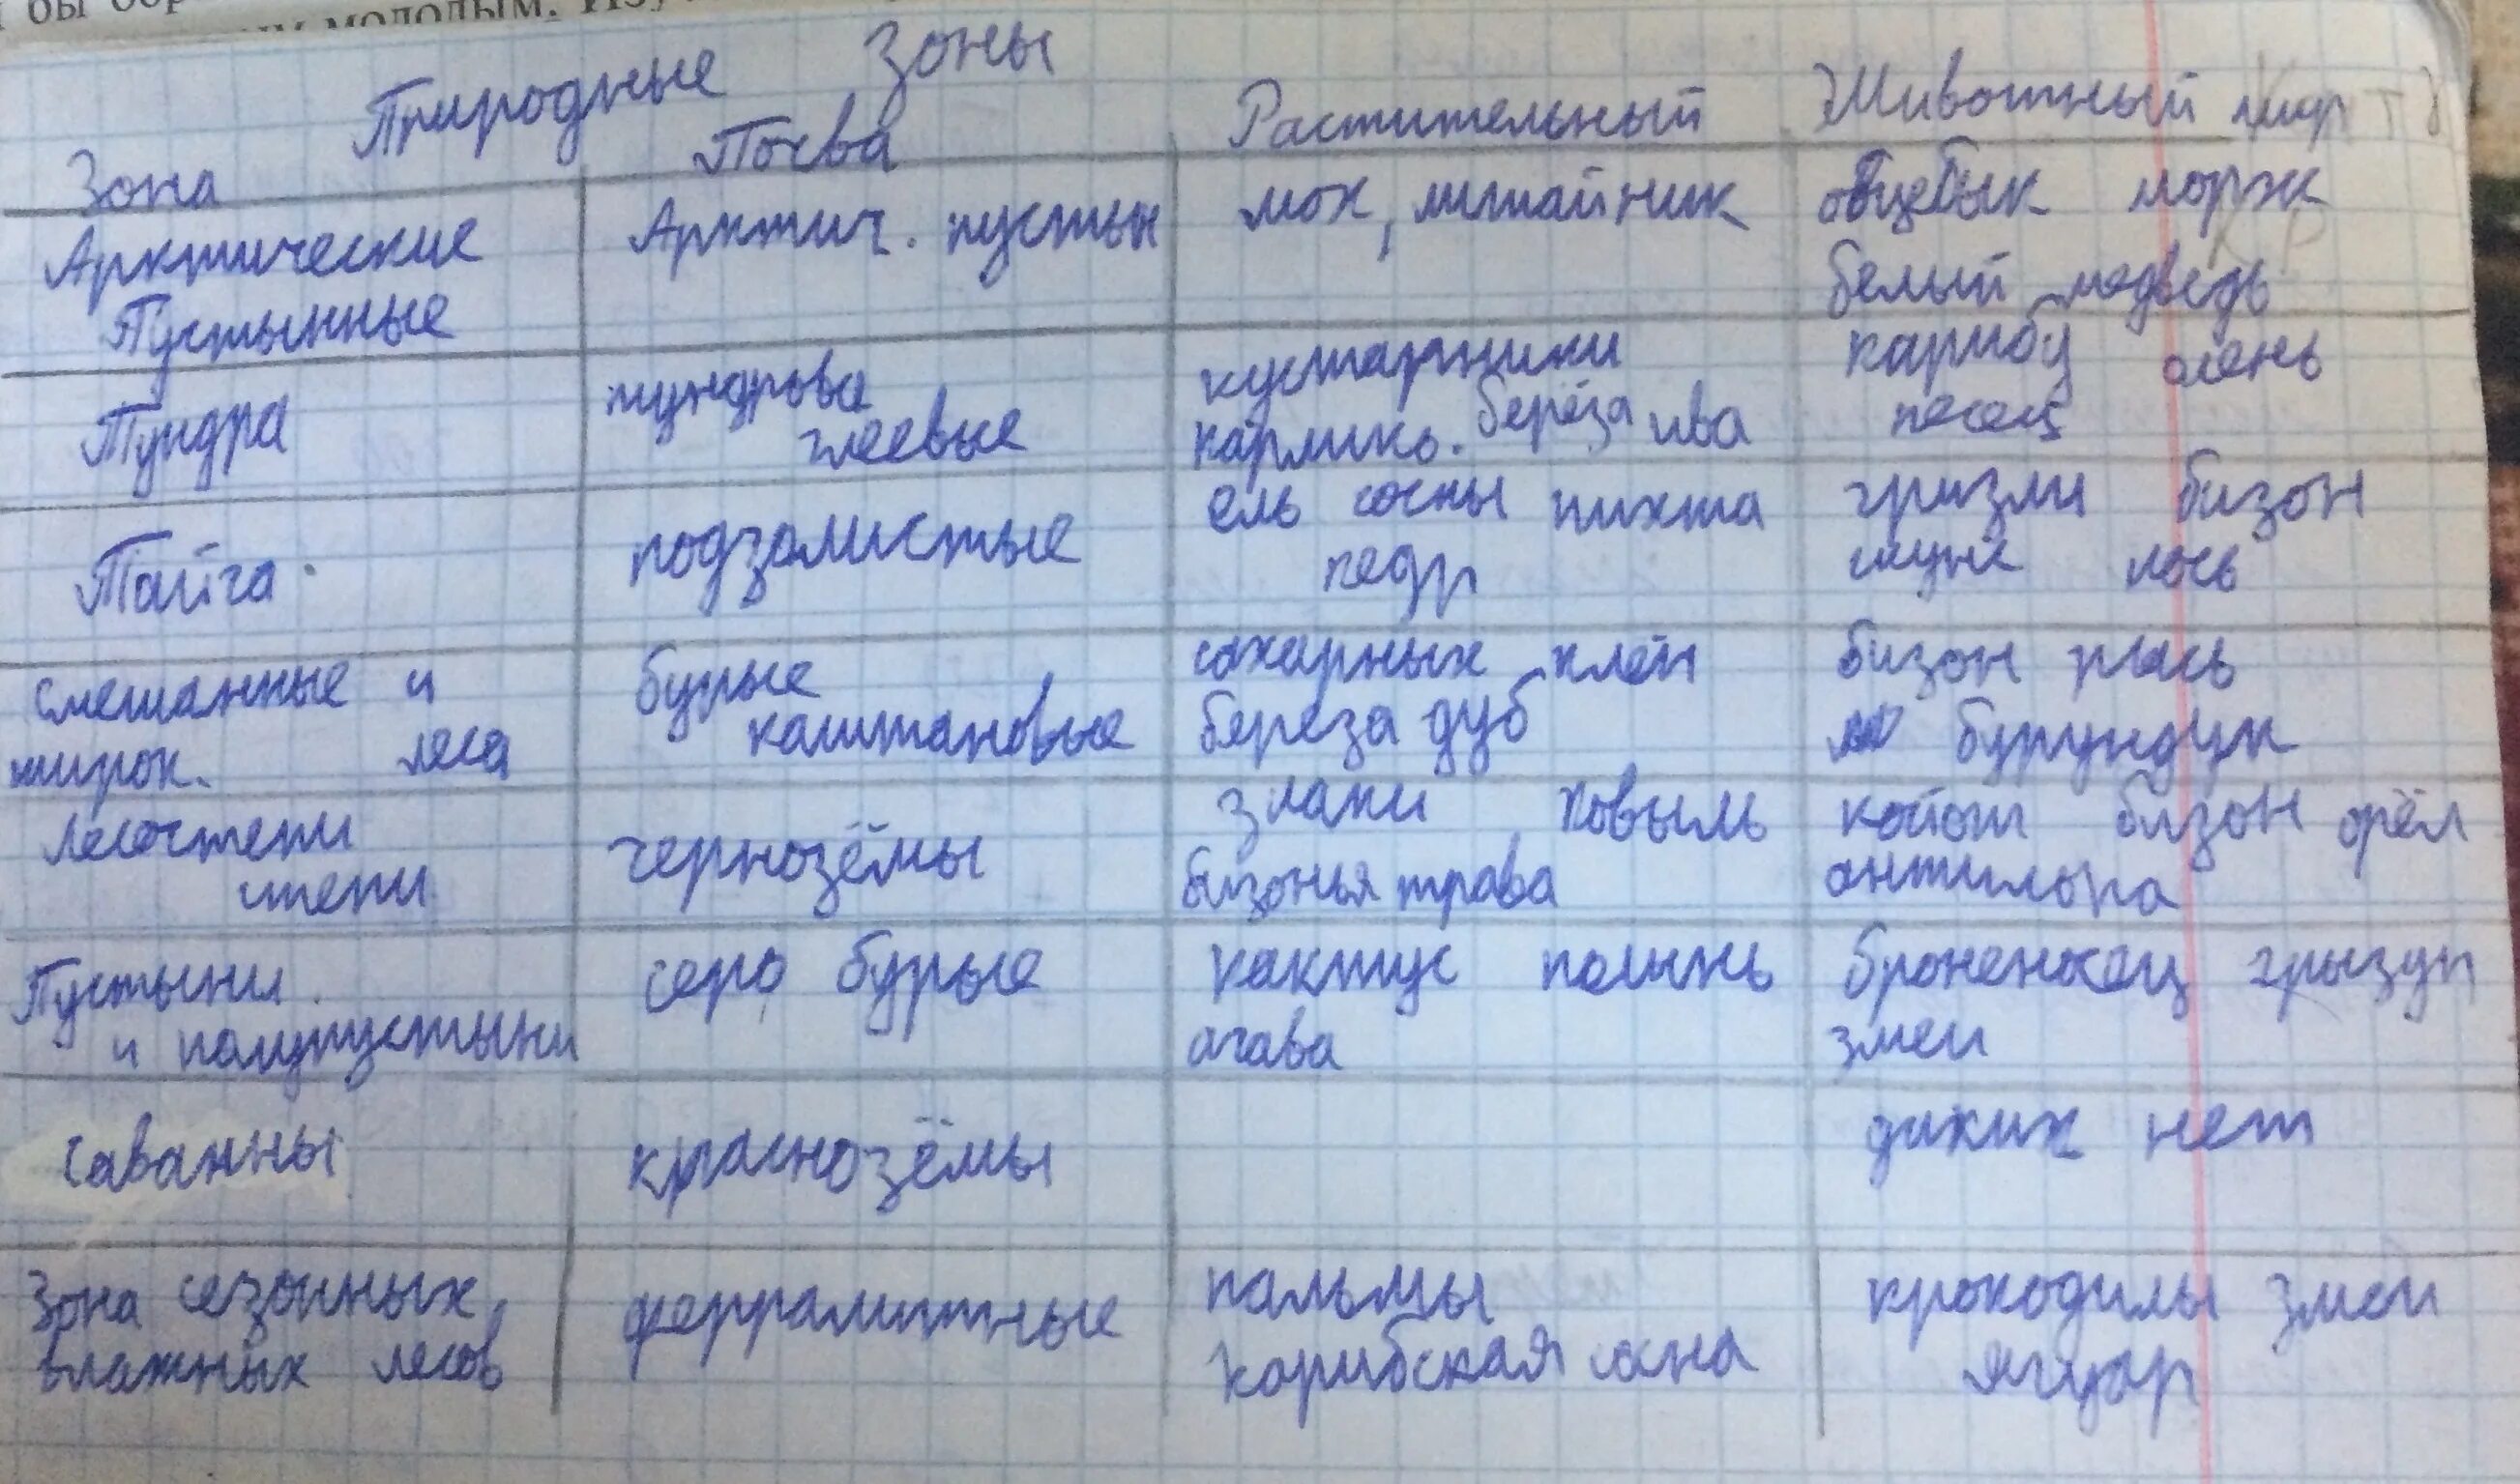 молодым. Изу
Природные зоны
Зона Почва Растительный Животный мир
Арктические Арктич. пустын мох, лишайник овцебык морж
Пустынные белый медведь
Тундра тундрова кустарники карибу олень
глеевые карлико. берёза ива песец
Тайга подзолистые ель сосны пихта гризли бизон
кедр скунс лось
Смешанные и бурые сахарных клён бизон рысь
широк. леса каштановые береза дуб бурундук
Лесостепи чернозёмы злаки ковыль койот бизон орёл
степи бизонья трава антилопа
Пустыни серо бурые кактус полынь броненосец грызун
и полупустыни агава змеи
Саванны краснозёмы диких нет
Зона сезонных ферралитные пальмы крокодилы змеи
влажных лесов карибская сосна ягуар